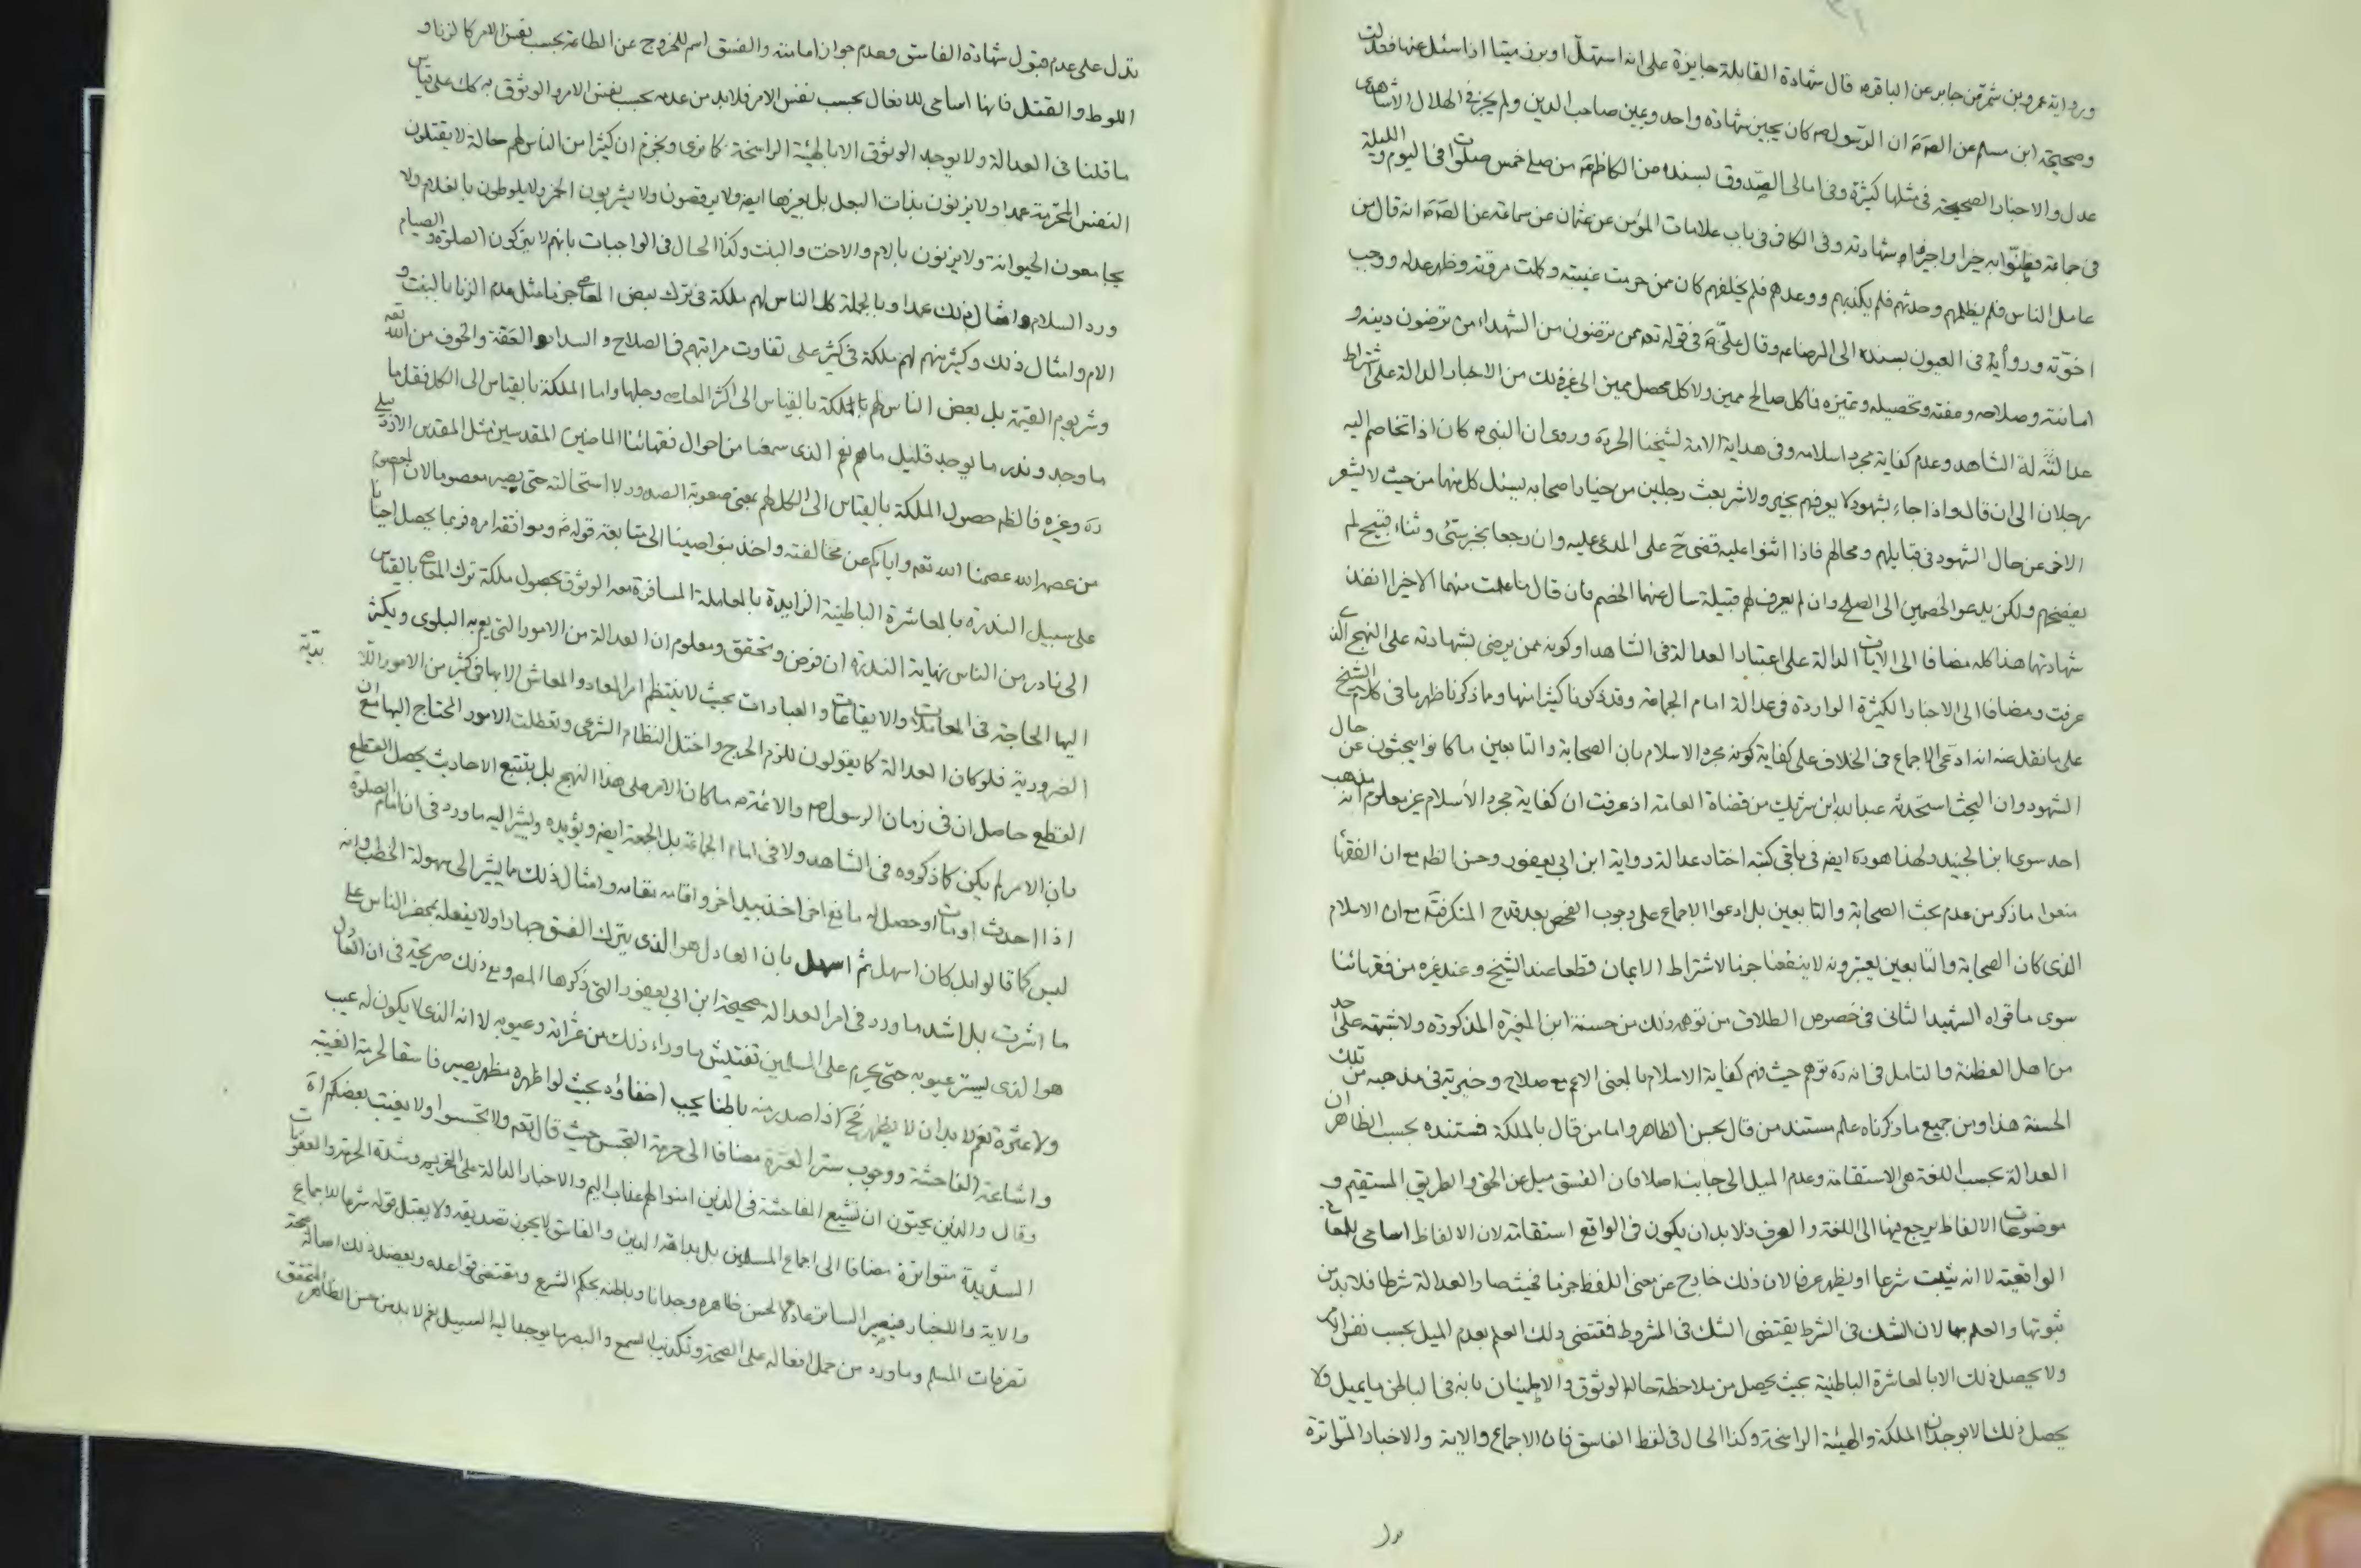 ورواية عمرو بن شمر عن جابر عن الباقر ع قال شهادة القابلة جايزة على انه استهل او برز ميتا اذا سئل عنها فعدلت
وصحيحة ابن مسلم عن الص ع ان الرسول ص كان يجيز شهادة واحد ويمين صاحب الدين ولم يجز في الهلال الا شاهدى
عدل والاخبار الصحيحة في مثلها كثيرة وفي امالى الصدوق بسنده عن الكاظم ع من صلى خمس صلوات في اليوم والليلة
في جماعة فظنوا به خيرا واجيزوا شهادته وفي الكافى في باب علامات المؤمن عن عثمان عن سماعة عن الص ع انه قال من
عامل الناس فلم يظلمهم وحدثهم فلم يكذبهم ووعدهم فلم يخلفهم كان ممن حرمت غيبته وكملت مروته وظهر عدله ووجب
اخوته ورواية في العيون بسنده الى الرضا ع وقال على ع في قوله تعه ممن ترضون من الشهداء من ترضون دينه و
امانته وصلاحه وعفته وتحصيله وتميزه فما كل صالح مميز ولا كل محصل مميز الى غير ذلك من الاخبار الدالة على اشتراط
عدالة الشاهد وعدم كفاية مجرد اسلامه وفي هداية الامة لشيخنا الحر ره وروى ان النبى ص كان اذا تخاصم اليه
رجلان الى ان قال واذا جاء بشهود لا يعرفهم بخير ولا شر بعث رجلين من خيار اصحابه يسئل كل منهما من حيث لا يشعر
الاخر عن حال الشهود في قبايلهم ومحالهم فاذا اثنوا عليه قضى ح على المدعى عليه وان رجعا بخبر سيئ وثناء قبيح لم
يفضحهم ولكن يدعو الخصمين الى الصلح وان لم يعرف لهم قبيلة سال عنهما الخصم فان قال ما علمت منهما الا خيرا انفذ
شهادتهما هذا كله مضافا الى الايات الدالة على اعتبار العدالة في الشاهد او كونه ممن يرضى بشهادته على النهج الذى
عرفت ومضافا الى الاخبار الكثيرة الواردة في عدالة امام الجماعة وقد ذكرنا كثيرا منها ومما ذكرنا ظهر ما في كلام الشيخ
على ما نقل عنه انه ادعى الاجماع في الخلاف على كفاية كونه مجرد الاسلام بان الصحابة والتابعين ما كانوا يبحثون عن حال
الشهود وان البحث استحدثه عبد الله ابن شريك من قضاة العامة اذ عرفت ان كفاية مجرد الأسلام غير معلوم انه مذهب
احد سوى ابن الجنيد ولهذا هو ره ايضه في باقى كتبه اختار عدالة رواية ابن ابى يعفور وحسن الظه مع ان الفقها
منعوا ما ذكر من عدم بحث الصحابة والتابعين بل ادعوا الاجماع على وجوب الفحص بعد قدح المنكر فيه مع ان الاسلام
الذى كان الصحابة والتابعين يعتبرونه لا ينفعنا جزما لاشتراط الايمان قطعا عند الشيخ وعند غيره من فقهائنا
سوى ما قواه الشهيد الثانى في خصوص الطلاق من توهم ذلك من حسنة ابن المغيرة المذكورة ولا شبهة على احد
من اهل الفطنة والتامل في انه ره توهم حيث فهم كفاية الاسلام بالمعنى الاعم مع صلاح وخيرية في مذهبه من تلك
الحسنة هذا ومن جميع ما ذكرناه علم مستند من قال بحسن الظاهر واما من قال بالملكة فمستنده بحسب الظاهر ان
العدالة بحسب اللغة هى الاستقامة وعدم الميل الى جانب اصلا فان الفسق ميل عن الحق والطريق المستقيم و
موضوعات الالفاظ يرجع فيها الى اللغة والعرف فلا بد ان يكون في الواقع استقامة لان الالفاظ اسامى للمعانى
الواقعية لا انه يثبت شرعا او يظهر عرفا لان ذلك خارج عن معنى اللفظ جزما فحيث صار العدالة شرطا فلا بد من
ثبوتها والعلم بها لان الشك في الشرط يقتضى الشك في المشروط فمقتضى ذلك العلم بعدم الميل بحسب نفس الامر
ولا يحصل ذلك الا بالمعاشرة الباطنية بحيث يحصل من ملاحظة حاله الوثوق والاطمينان بانه في الباطن ما يميل ولا
يحصل ذلك الا بوجدان الملكة والهيئة الراسخة وكذا الحال في لفظ الفاسق فان الاجماع والاية والاخبار المتواترة
تدل على عدم قبول شهادة الفاسق وعدم جواز امامته والفسق اسم للخروج عن الطاعة بحسب نفس الامر كالزنا و
اللوط والقتل فانها اسامى للافعال بحسب نفس الامر فلا بد من عدمه بحسب نفس الامر والوثوق به كك على قياس
ما قلنا في العدالة ولا يوجد الوثوق الا بالهيئة الراسخة كما نرى ونجزم ان كثيرا من الناس لهم حالة لا يقتلون
النفس المحرمة عمدا ولا يزنون بذات البعل بل بغيرها ايضه ولا يرقصون ولا يشربون الخمر ولا يلوطون بالغلام ولا
يجامعون الحيوانة ولا يزنون بالام والاخت والبنت وكذا الحال في الواجبات بانهم لا يتركون الصلوة والصيام
ورد السلام وامثال ذلك عمدا وبالجملة كل الناس لهم ملكة في ترك بعض المعاصى جزما مثل عدم الزنا بالبنت و
الام وامثال ذلك وكثير منهم لهم ملكة في كثير على تفاوت مراتبهم في الصلاح والسداد والعفة والخوف من الله تعه
وشر يوم القيمة بل بعض الناس لهم الملكة بالقياس الى اكثر المعاصى وجلها واما الملكة بالقياس الى الكل فقل ما
ما وجد وندر ما يوجد قليل ما هم نعم الذى سمعنا من احوال فقهائنا الماضين المقدسين مثل المقدس الاردبيلى
ره وغيره فالظه حصول الملكة بالقياس الى الكل لهم بمعنى صعوبة الصدور لا استحالته حتى يصير معصوما لان المعصوم
من عصمه الله عصمنا الله تعه واياكم عن مخالفته واخذ بنواصينا الى متابعة قوله ص وموافقة امره فربما يحصل احيانا
على سبيل الندرة بالمعاشرة الباطنية الزايدة بالمعاملة المسافرة معه الوثوق بحصول ملكة ترك المعاصى بالقياس
الى نادر من الناس نهاية الندرة ان فرض وتحقق ومعلوم ان العدالة من الامور التى يعم به البلوى ويكثر
اليها الحاجة في المعاملات والايقاعات والعبادات بحيث لا ينتظم امر المعاد والمعاش الا بها في كثير من الامور اللابدية
الضرورية فلو كان العدالة كما يقولون للزم الحرج واختل النظام الشرعى وتعطلت الامور المحتاج اليها مع ان
القطع حاصل ان في زمان الرسول ص والائمة ص ما كان الامر على هذا النهج بل بتتبع الاحاديث يحصل القطع
بان الامر لم يكن كما ذكروه في الشاهد ولا في امام الجماعة بل الجمعة ايضه ويؤيده ويشير اليه ما ورد في ان امام الصلوة
اذا احدث او مات او حصل له مانع اخر اخذ بيد اخر واقامه مقامه وامثال ذلك مما يشير الى سهولة الخطب وانه
ليس كما قالوا بل كان اسهل ثم اسهل بان العادل هو الذى يترك الفسق جهارا ولا يفعله بمحضر الناس على
ما اشرت بل اشد ما ورد في امر العدالة صحيحة ابن ابى يعفور التى ذكرها المص ومع ذلك صريحة في ان العادل
هو الذى يستر عيوبه حتى يحرم على المسلمين تفتيش ما وراء ذلك من عثراته وعيوبه لا انه الذى لا يكون له عيب
ولا عثرة نعم لا بد ان لا يظهر فح اذا صدر منه باطنا يجب اخفاؤه بحيث لو اظهره مظهر يصير فاسقا لحرمة الغيبة
واشاعة الفاحشة ووجوب ستر العثرة مضافا الى حرمة التجسس حيث قال تعه ولا تجسسوا ولا يغتب بعضكم اه
وقال والذين يحبون ان تشيع الفاحشة في الذين امنوا لهم عذاب اليم والاخبار الدالة على التحريم وشدة الحرمة والعقوبات
الشديدة متواترة مضافا الى اجماع المسلمين بل بداهة الدين والفاسق لا يجوز تصديقه ولا يقبل قوله شرعا للاجماع
والاية والاخبار فيصير الساتر عادلا لحسن ظاهره وجدانا وباطنه بحكم الشرع ومقتضى قواعده ويعضد ذلك اصالة صحة
تصرفات المسلم وما ورد من حمل افعاله على الصحة وتكذيب السمع والبصر ما يوجد اليه السبيل نعم لا بد من حسن الظاهر المتحقق